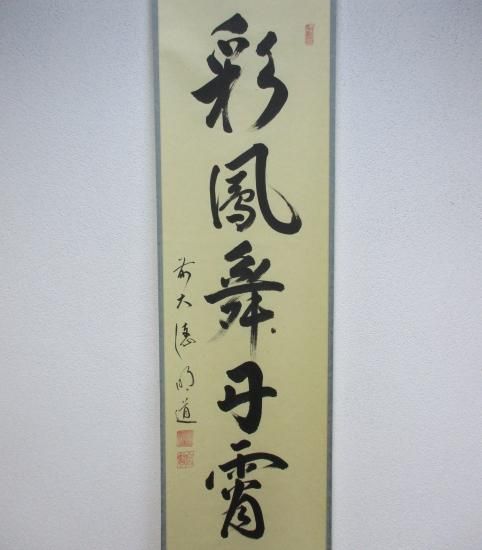 彩鳳舞丹霄
前大徳明道